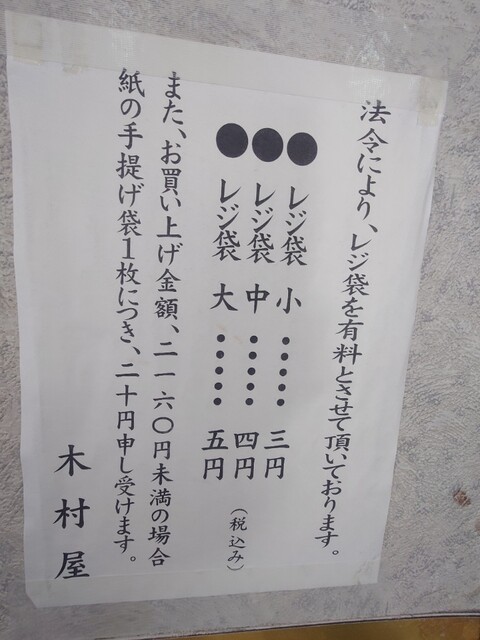 法令により、レジ袋を有料とさせて頂いております。
●レジ袋 小 ・・・・・三円
●レジ袋 中 ・・・・・四円
●レジ袋 大 ・・・・・五円
（税込み）
また、お買い上げ金額、二一六〇円未満の場合
紙の手提げ袋1枚につき、二十円申し受けます。
木村屋